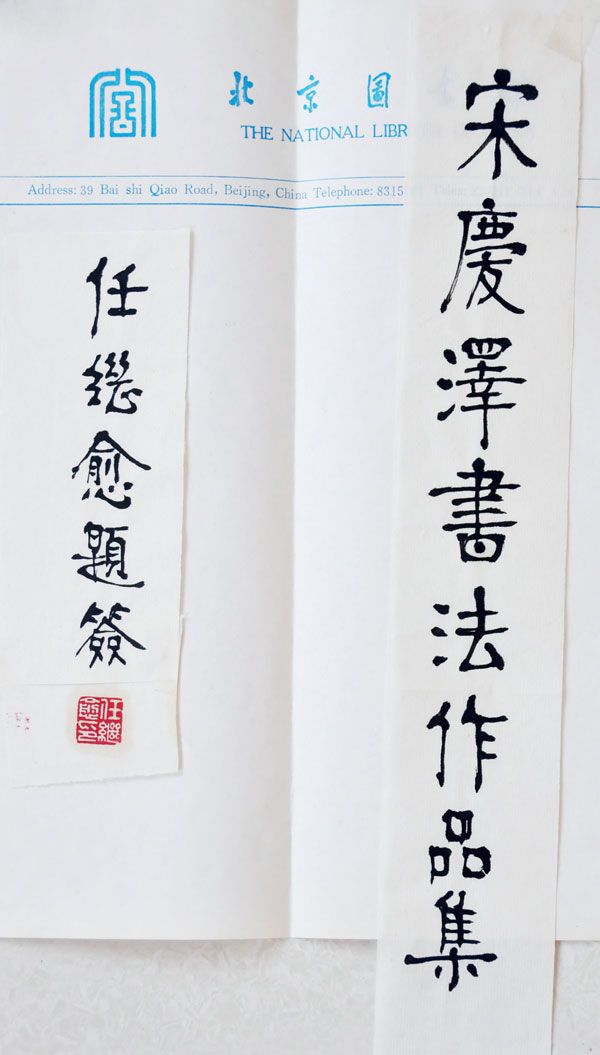 北京圖
THE NATIONAL LIBR
Address: 39 Bai shi Qiao Road, Beijing, China Telephone: 8315
宋慶澤書法作品集
任继愈題簽
任繼愈印